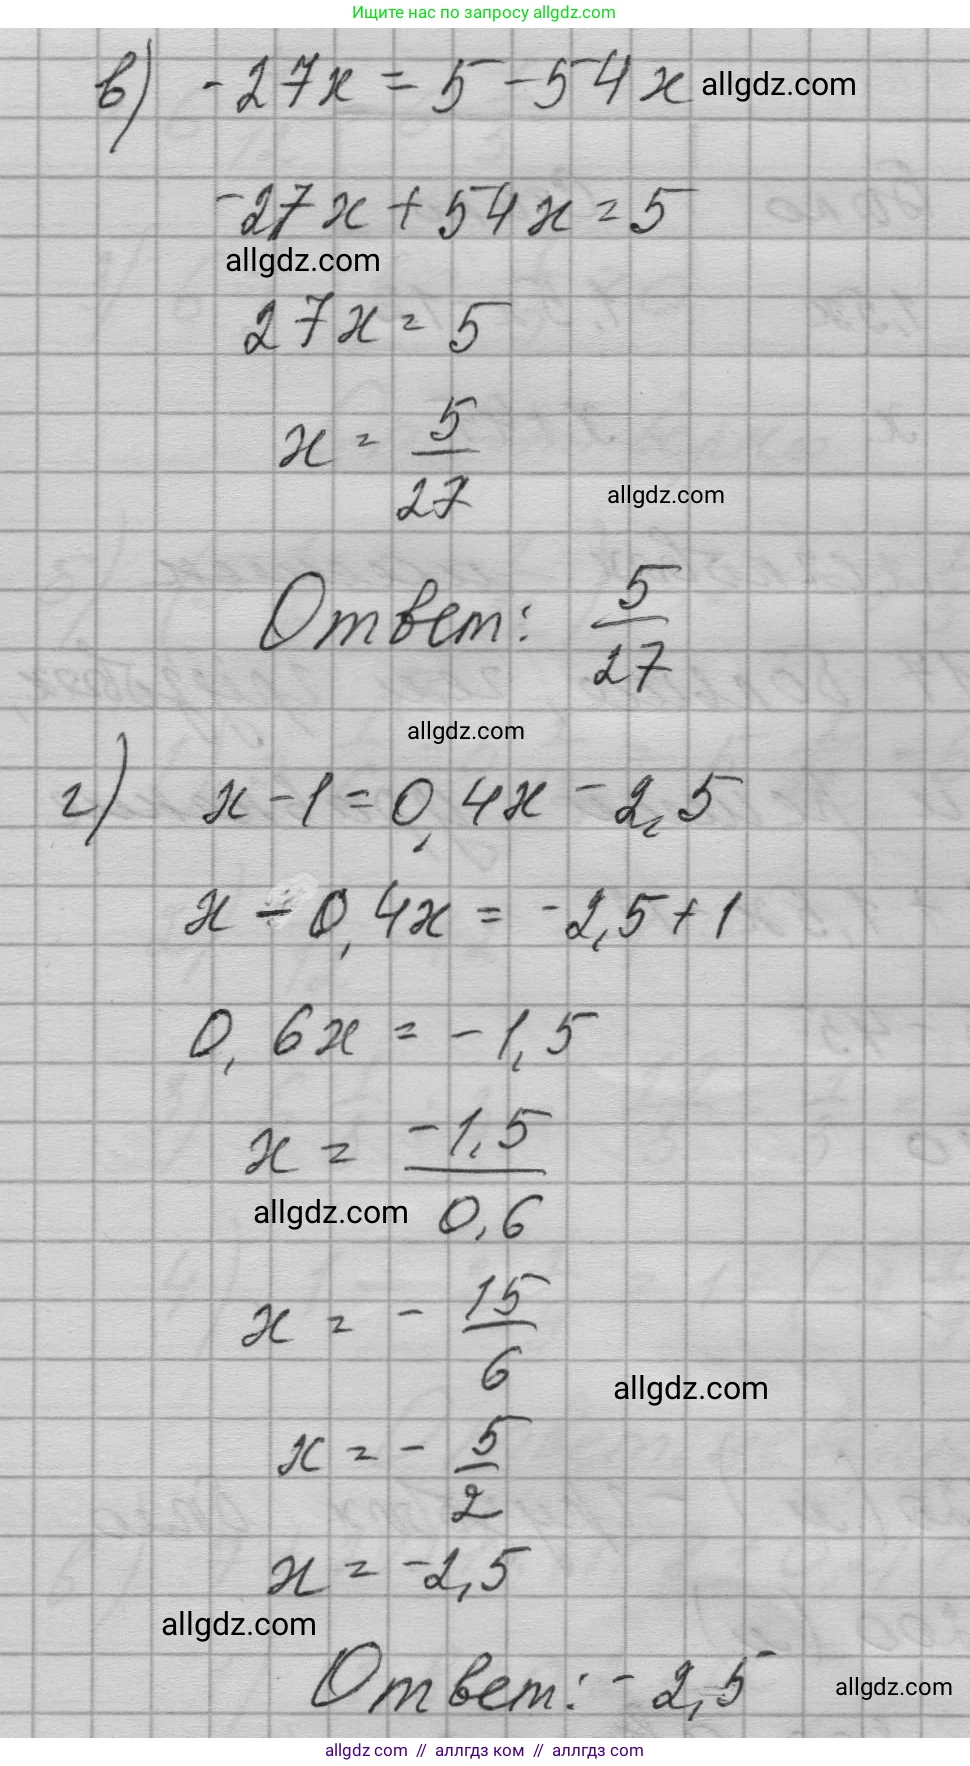 Ищите нас по запросу allgdz.com
в) -27x = 5 - 54x allgdz.com
-27x + 54x = 5
allgdz.com
27x = 5
x = 5/27
allgdz.com
Ответ: 5/27
allgdz.com
г) x - 1 = 0,4x - 2,5
x - 0,4x = -2,5 + 1
0,6x = -1,5
x = -1,5/0,6
allgdz.com
x = - 15/6
allgdz.com
x = - 5/2
x = -2,5
allgdz.com
Ответ: -2,5 allgdz.com
allgdz.com // аллгдз ком // аллгдз com